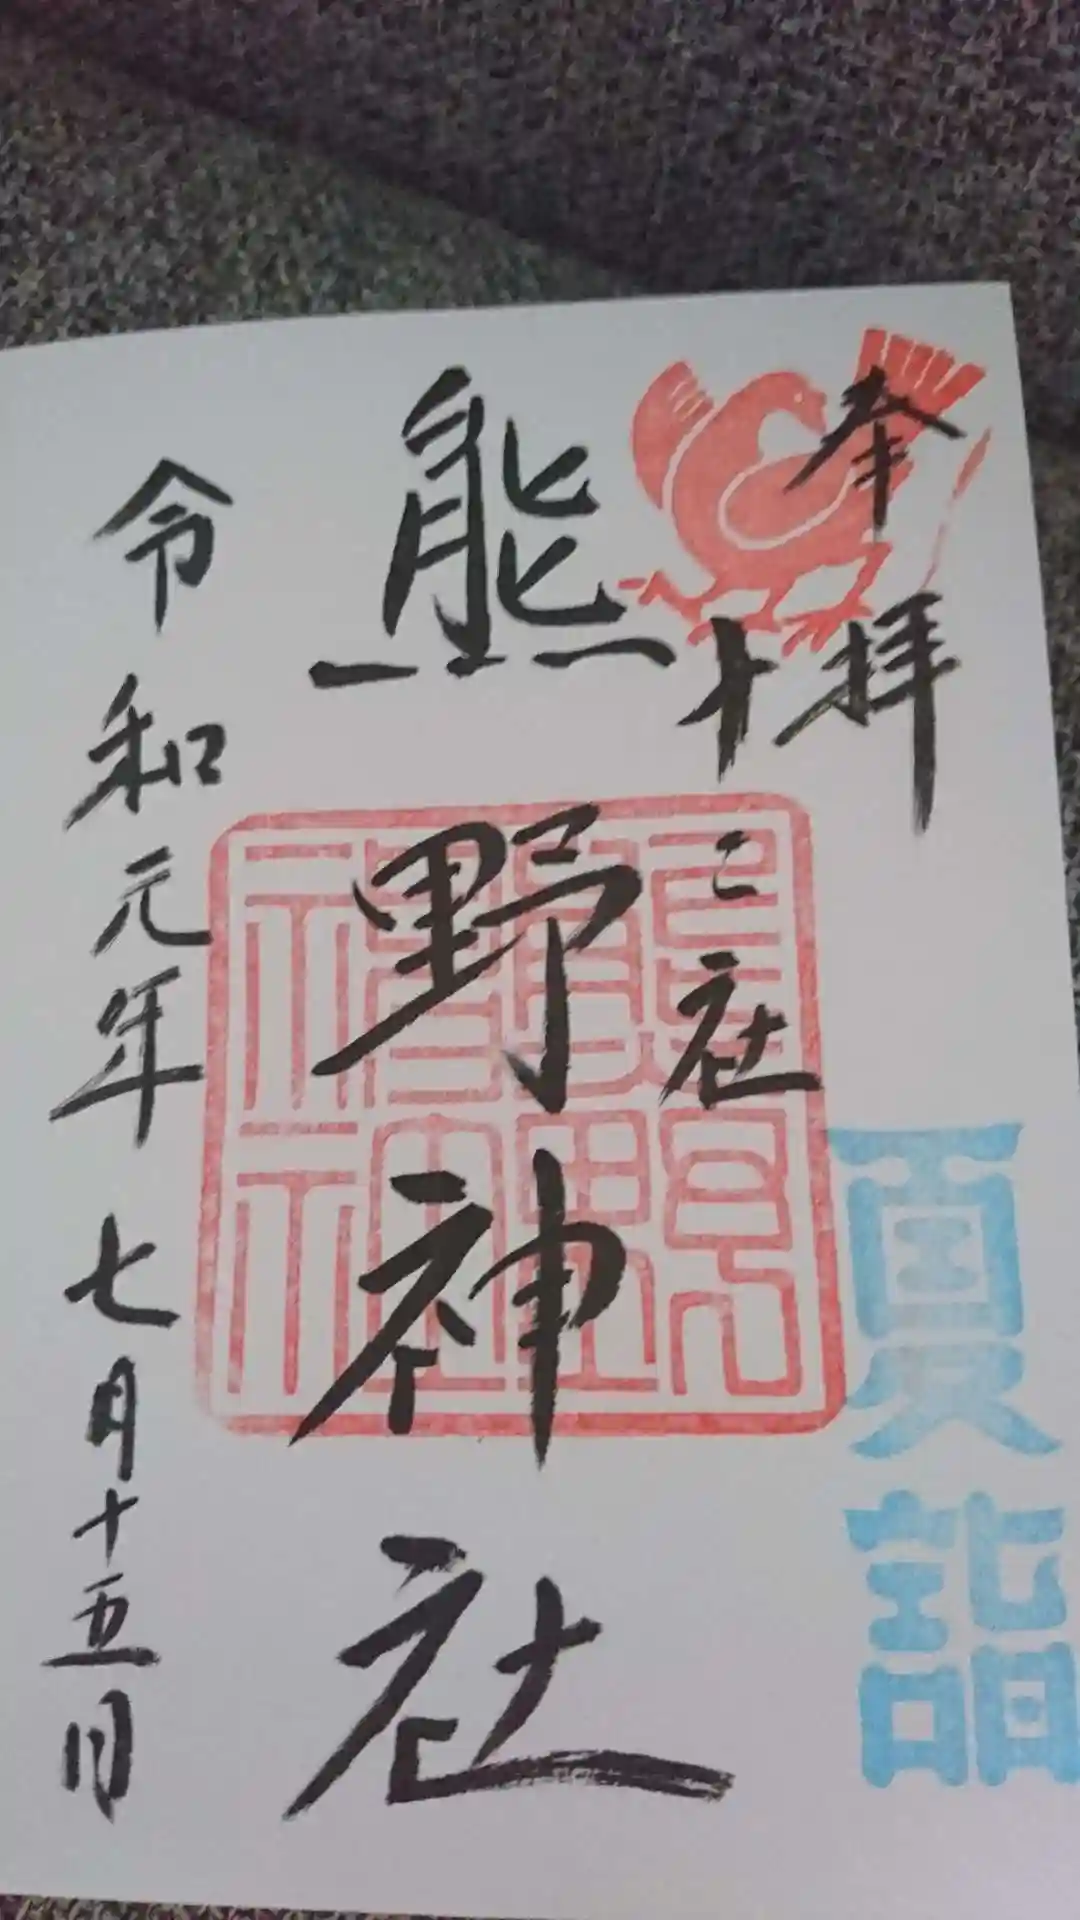 奉拝
十二社
熊野神社
令和元年七月十五日
夏詣